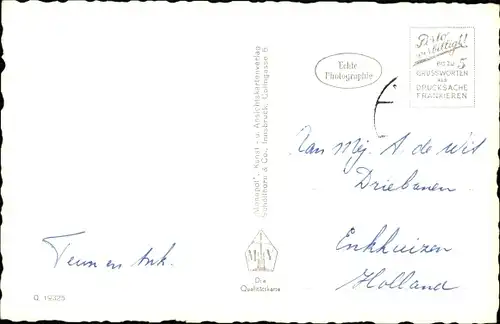 Porto
verbilligt!
BIS ZU 5
GRUSSWORTEN
ALS
DRUCKSACHE
FRANKIEREN
Echte
Photographie
"Monopol", Kunst- u. Ansichtskartenverlag
Schöllhorn & Co., Innsbruck, Colingasse 6
Aan Mej. A. de Wit
Driebanen
Enkhuizen
Holland
Teun en Ank.
M V
Die
Qualitätskarte
Q 19325